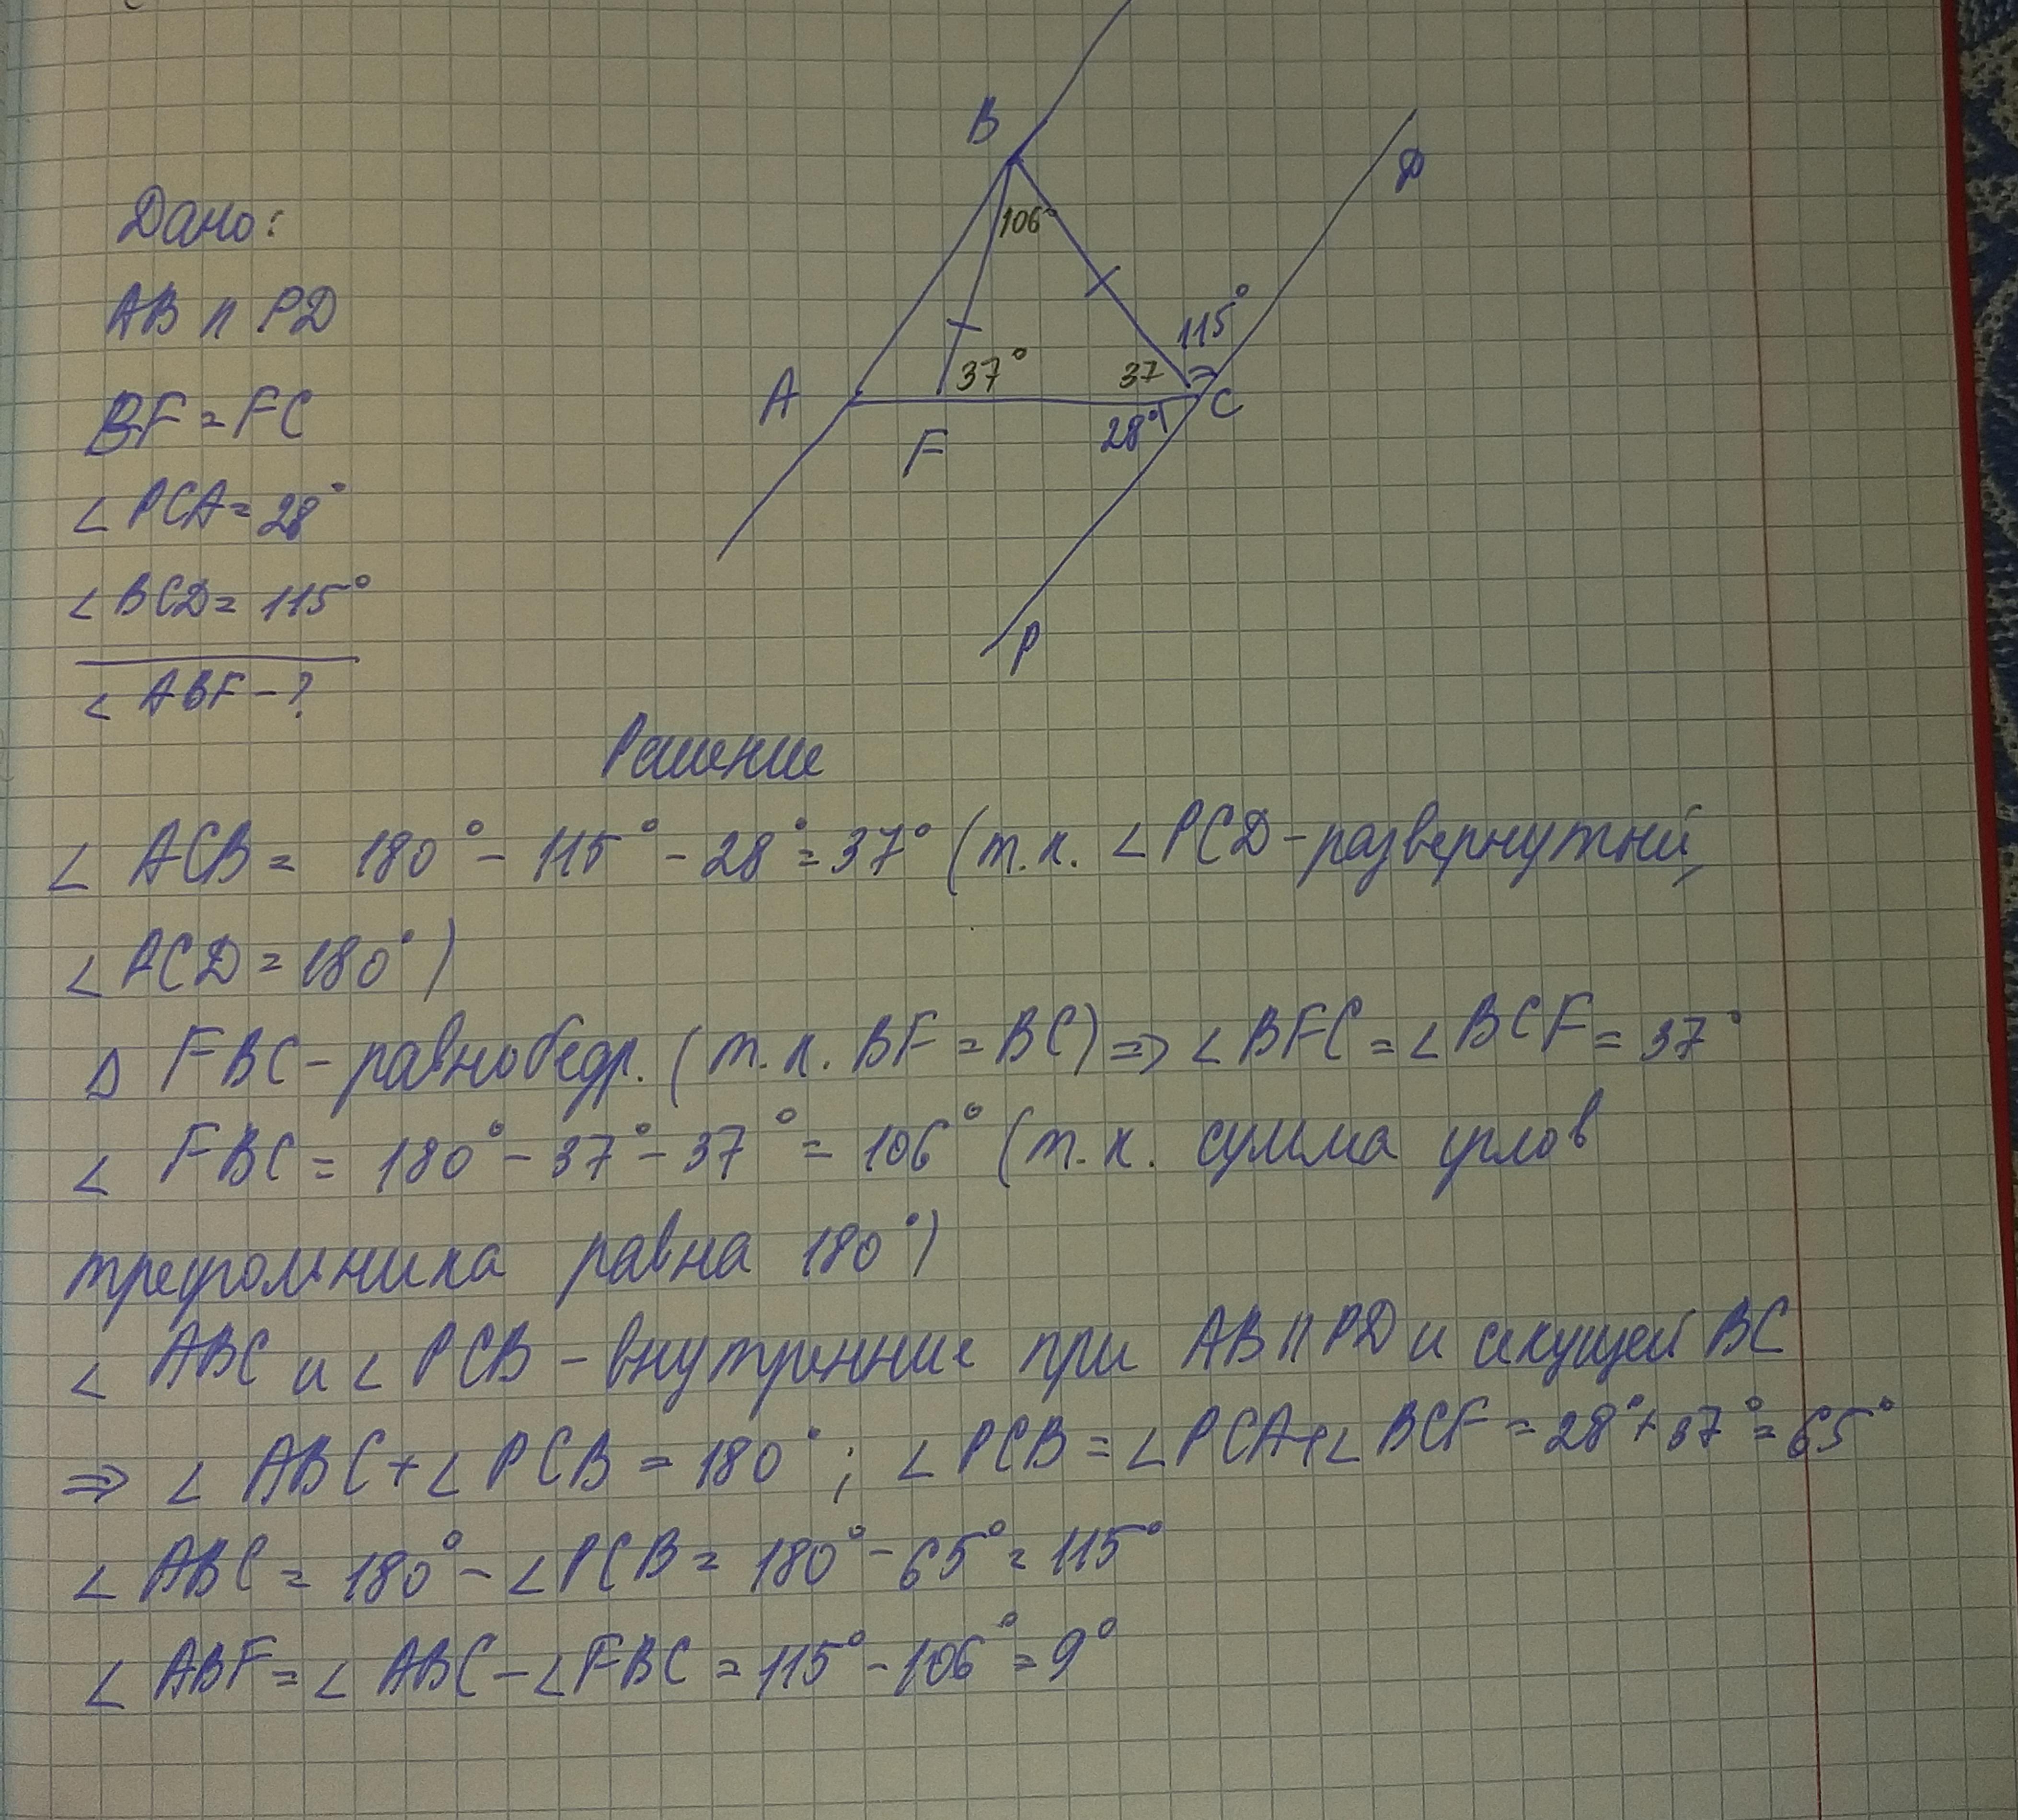 B
D
106°
115°
37°
37
A
F
28°
C
P
Дано:
AB ∥ PD
BF = FC
∠ PCA = 28°
∠ BCD = 115°
∠ ABF - ?
Решение
∠ ACB = 180° - 115° - 28° = 37° (т.к. ∠ PCD - развернутый,
∠ ACD = 180°)
Δ FBC - равнобедр. (т.к. BF = BC) ⇒ ∠ BFC = ∠ BCF = 37°
∠ FBC = 180° - 37° - 37° = 106° (т.к. сумма углов
треугольника равна 180°)
∠ ABC и ∠ PCB - внутренние при AB ∥ PD и секущей BC
⇒ ∠ ABC + ∠ PCB = 180°; ∠ PCB = ∠ PCA + ∠ BCF = 28° + 37° = 65°
∠ ABC = 180° - ∠ PCB = 180° - 65° = 115°
∠ ABF = ∠ ABC - ∠ FBC = 115° - 106° = 9°